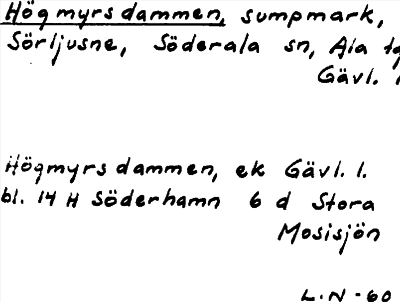 Högmyrsdammen, sumpmark,
Sörljusne, Söderala sn, Ala
Gävl.
Högmyrsdammen, ek Gävl. l.
bl. 14 H Söderhamn 6 d Stora
Mosisjön
L.N-60